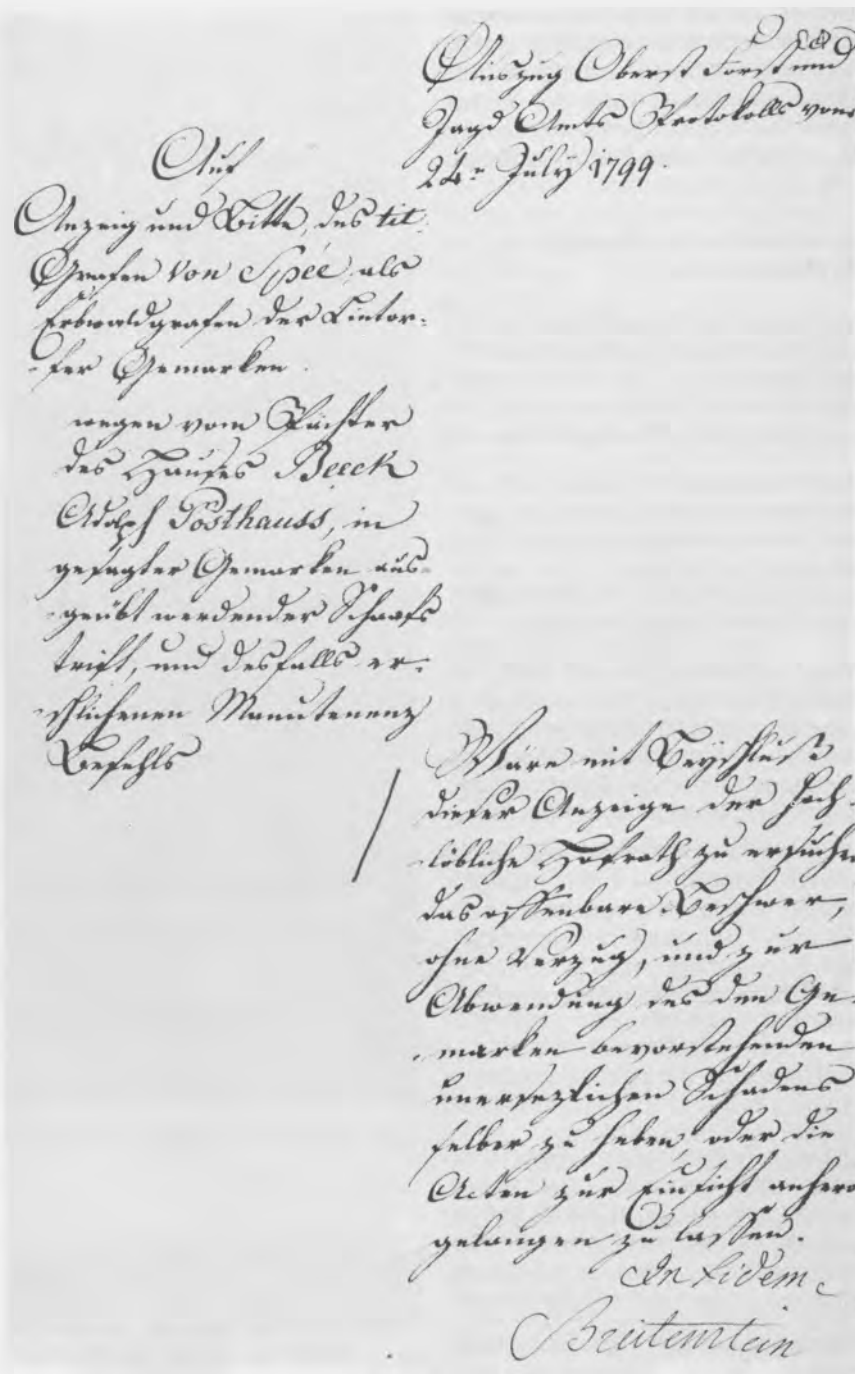 Auszug Oberst Forst und
Jagd Amts Protokolls vom
24n July 1799.
Auf
Anzeig und Bitte, des tit:
Grafen von Spée als
Erbwaldgrafen der Lintor-
fer Gemarken
wegen vom Pächter
des Hauses Beeck
Adolph Posthauss, in
gesagter Gemarken aus-
geübt werdender Schaafs
trift, und desfalls er-
schlichenen Manutenenz
Befehls
Wäre mit Beyschluß
dieser Anzeige der hoch-
löbliche Hofrath zu ersuchen
das offenbare Beschwer,
ohne Verzug, und zur
Abwendung des den Ge-
marken bevorstehenden
unersezlichen Schadens
selber zu heben, oder die
Acten zur Einsicht anhero
gelangen zu lassen.
In fidem
Breitenstein